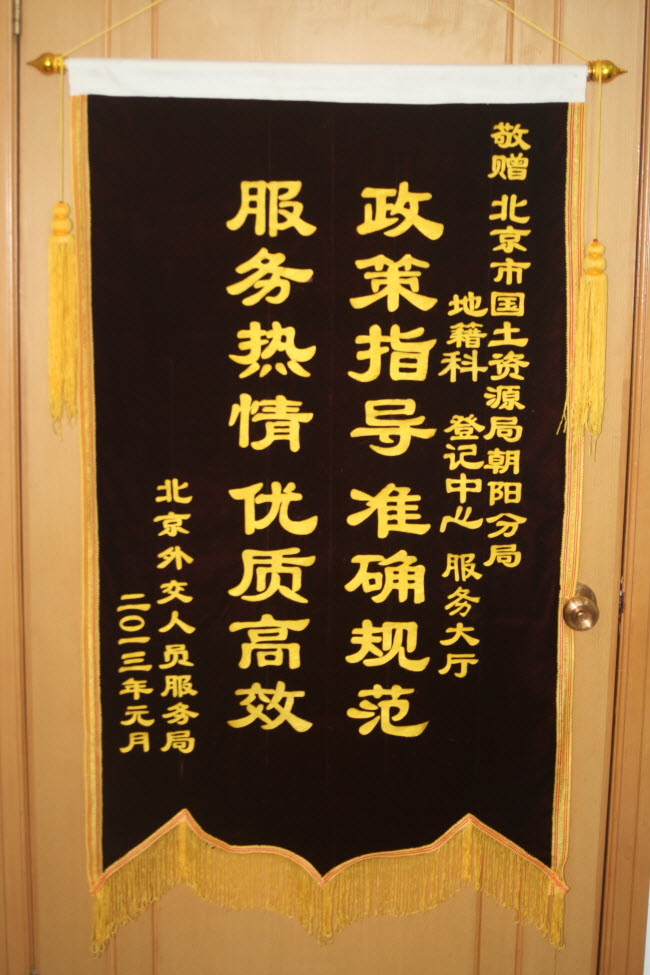 敬赠 北京市国土资源局朝阳分局
地籍科 登记中心 服务大厅
政策指导 准确规范
服务热情 优质高效
北京外交人员服务局
二〇一三年元月